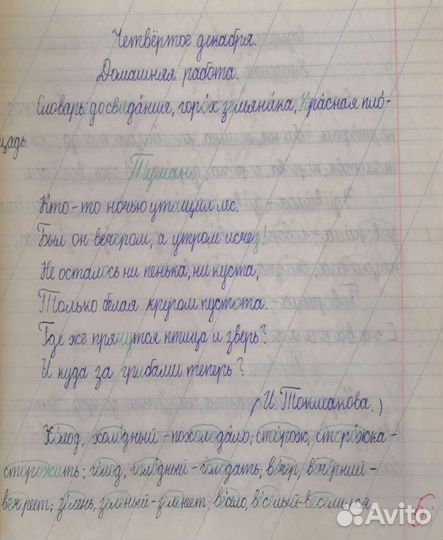 Четвёртое декабря.
Домашняя работа.
Словарь: досвидания, горох земляника, Красная пло-
щадь.
Туман.
Кто-то ночью утащил лес.
Был он вечером, а утром исчез!
Не осталось ни пенька, ни куста,
Только белая кругом пустота.
Где же прячутся птица и зверь?
И куда за грибами теперь?
(И. Токмакова.)
Холод, холодный-похолодало; сторож, сторожка-
сторожить; голод, голодный-голодать; вечер, вечерний-
вечереет; зелень, зеленый-зеленеет; весело, веселый-веселился
Avito